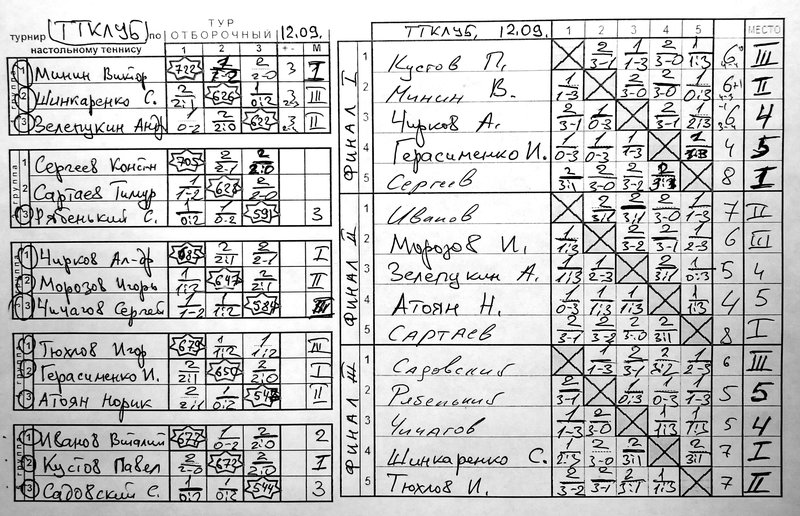 турнир (ТТКЛУБ) по ТУР 12.09.
настольному теннису ОТБОРОЧНЫЙ
1 2 3 + - М
группа 1 Минин Виктор 722 2 2-0 3 I
2 Шинкаренко С. 2 2:1 626 1 0:2 3 III
3 Зелепукин Анд 1 0-2 2 2:0 622 3 II
группа 1 Сергеев Конст-н 705 2 2-1 2 2:0
2 Сартаев Тимур 1 1-2 628 2 2:1
3 Рябенький С. 1 0:2 1 0-2 591 3
группа 1 Чирков Ал-др 685 2 2:1 2 2-1 I
2 Морозов Игорь 1 1:2 647 2 2:0 II
3 Чичагов Сергей 1 1-2 1 1:2 587 III
группа 1 Тюхлов Игор 679 1 1:2 1 1:2 IV
2 Герасименко И. 2 2:1 650 2 2:0 I
3 Атоян Норик 2 2:1 1 0:2 II
группа 1 Иванов Виталий 677 1 0-2 2 2:0 2
2 Кустов Павел 2 2-0 2 2:0 I
3 Садовский С. 1 0:2 1 0:2 544 3
ТТКЛУБ, 12.09. 1 2 3 4 5 МЕСТО
ФИНАЛ I
1 Кустов П. 2 3-1 1 1-3 2 3-0 1 1:3 6 III
2 Минин В. 1 1-3 2 3-0 2 3-0 1 0:3 6 II
3 Чирков А. 2 3-1 1 0-3 2 3-1 1 2:3 6 4
4 Герасименко И. 1 0-3 1 0-3 1 1-3 1 4 5
5 Сергеев 2 3:1 2 3-0 2 3-2 2 8 I
ФИНАЛ II
1 Иванов 2 3:1 2 3:1 2 3-0 1 1-3 7 II
2 Морозов И. 1 1:3 2 3-2 2 3-1 1 2-3 6 III
3 Зелепукин А. 1 1:3 1 2-3 2 3:1 1 0:3 5 4
4 Атоян Н. 1 0-3 1 1:3 1 1:3 1 1:3 4 5
5 САРТАЕВ 2 3-1 2 3-2 2 3:0 2 3:1 8 I
ФИНАЛ III
1 Садовский 1 1-3 2 3-1 2 3:2 1 2-3 6 III
2 Рябенький 2 3-1 1 0:3 1 0-3 1 1-3 5 5
3 Чичагов 1 1-3 2 3-0 1 1:3 1 1:3 5 4
4 Шинкаренко С. 1 2:3 2 3-0 2 3:1 2 3:1 7 I
5 Тюхлов И. 2 3-2 2 3-1 2 3:1 1 1:3 7 II